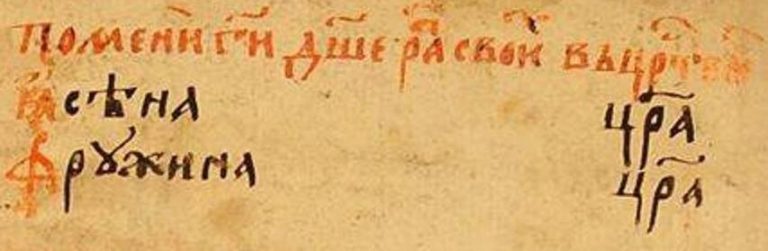 помени г҃и дш҃е ра свои въ цр҃тви
Ꙗсѣна цр҃а
Фрꙋжина цр҃а